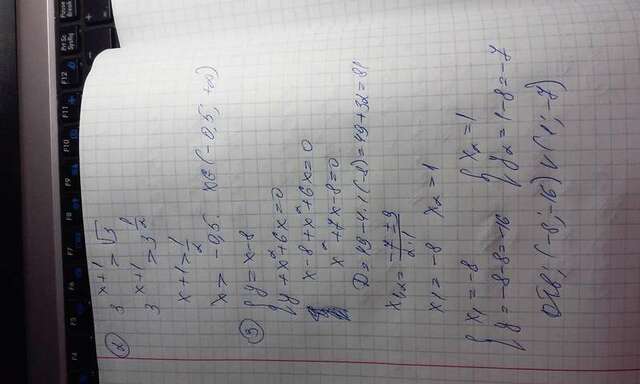 F4 F5 F6 F7 F8 F9 F10 F11 F12 Prt Sc SysRq Pause Break
② 3^(x+1) > √3
3^(x+1) > 3^(1/2)
x+1 > 1/2
x > -0,5. x∈(-0,5; +∞)
③ { y = x-8
y + x² + 6x = 0
x-8+x²+6x=0
x²+7x-8=0
D=49-4·1(-8)=49+32=81
x₁,₂ = (-7±9)/(2·1)
x₁ = -8 x₂ = 1
{ x₁ = -8 { x₂ = 1
y = -8-8 = -16 y₂ = 1-8 = -7
Отв; (-8; -16) U (1; -7)